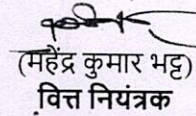 (महेंद्र कुमार भट्ट)
वित्त नियंत्रक